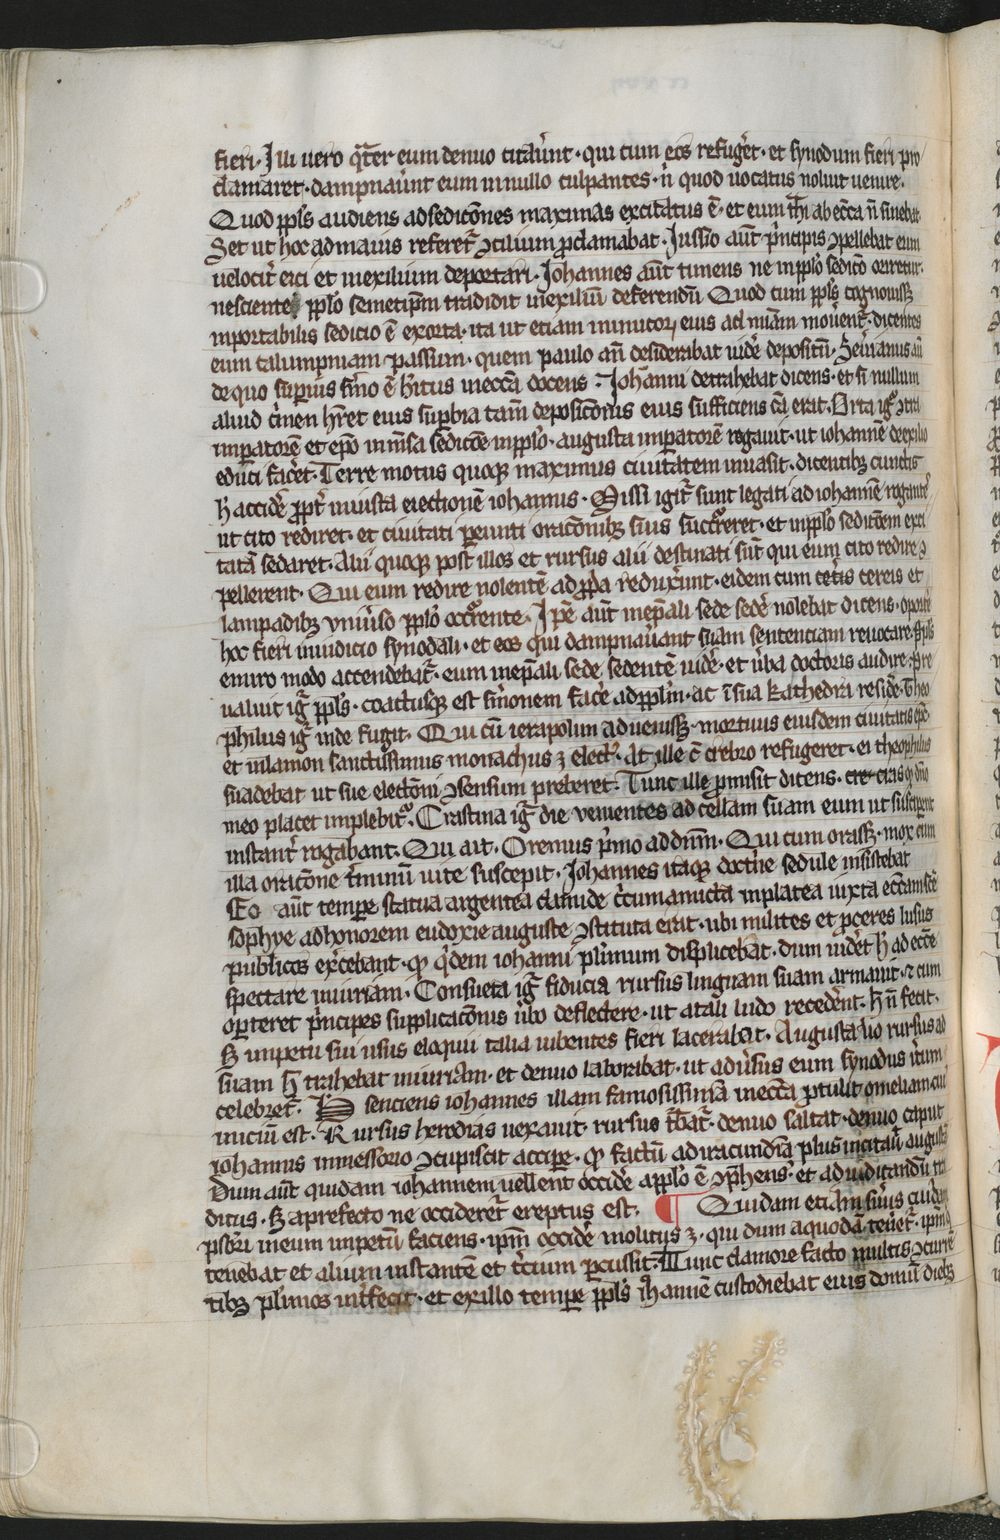 fieri. Illi uero qͣter eum denuo citaūnt. qui cum eos refuḡet. et synodum fieri pro
clamaret. dampnaūnt eum in nullo culpantes. n̄ quod uocatus noluit uenire.
Quod ppl̄s audiens ad sedicōnes maximas excitatus ē. et eum th̄i ab ecc̄a n̄ sinebat.
Set ut hoc ad maius referet᷑ ꝯcilium ꝓclamabat. Jussio aūt pͥncipis ꝯpellebat eum
uelocit᷑ eici et in exilium deportari. Johannes aūt timens ne in ppl̄o sedicō oriretur.
nesciente ppl̄o semetip̄m tradidit in exiliū deferendū. Quod cum ppl̄s cognouissꝫ
inportabilis sedicio ē exorta. ita ut etiam inimicorꝝ eius ad miām mouent᷑. dicentes
eum calumpniam passum. quem paulo an̄ desiderabat uidē depositū. Seūianus aū
de quo supͥius sͬmo ē hītus in ecc̄a docens. Johanni detrahebat dicens. et si nullum
aliud cͥmen hr̄et eius suꝑbia tam̄ deposicōnis eius sufficiens cā erat. Orta igͦ ꝯtra
imperatorē et ep̄o inm̄sa sedicōe in ppl̄o. augusta imperatorē rogauit. ut iohannē de exilio
educi facēt. Terre motus quoqꝫ maximus ciuitatem inuasit. dicentibꝫ cunctis
h̄ accidē ꝓpt᷑ iniusta eiectionē iohannis. Missi igit᷑ sunt legati ad iohannē rogantes
ut cito rediret. et ciuitati ꝑeunti oracōnibꝫ suis succͬreret. et in ppl̄o sedicōem exci
tatā sedaret. Alii quoqꝫ post illos et rursus alii destinati sūt qui eum cito redire ꝯ
pellerent. Qui eum redire nolentē ad ꝑp̄a redux̄unt. eidem cum cet̄is cereis et
lampadibꝫ vniūso ppl̄o occͬrente. Ip̄e aūt in ep̄ali sede sedē nolebat dicens. oportē
hoc fieri in iudicio synodali. et eos qui dampnauāant suam sentenciam reuocare.
e miro modo accendebat᷑. eum in ep̄ali sede sedente uidē. et ūba doctoris audire. Pre
ualuit igͬ ppl̄s. coactusqꝫ est sͬmonem facē ad pplm̄. ac ī sua kathedra residē. Theo
philus igͬ inde fugit. Qui cū ierapolim aduenissꝫ. mortuus eiusdem ciuitatis ep̄c
et in lamon sanctissimus monachus ꝫ elect᷒. At ille c̄ crebro refugeret. ei theophilus
suadebat ut sue electōni ꝯsensum preberet. Tunc ille ꝓmisit dicens. cre cras qͦ dn̄o
meo placet implebitͬ. Crastina igͬ die uenientes ad cellam suam eum ut susciperet
instant᷑ rogabant. Qui ait. Oremus pͥmo ad dn̄m. Qui cum orassꝫ. mox cum
illa oracōne t᷑minū uite suscepit. Johannes itaqꝫ doctͥne sedule insistebat
Eo aūt tempe statua argentea clamide c̄cumamicta in platea iuxta ecc̄am sc̄e
soph̄ye ad honorem eudoxie auguste ꝯstituta erat. ubi milites et ꝓceres lusus
publicos ex̄cebant. qͩ qͥdem iohanni plͥmum displicebat. dum uidēt h̄ ad ecc̄e
spectare iniuriam. Consueta igͬ fiducia rursus linguam suam armauit. ⁊ cum
oꝑteret pͥncipes supplicacōnis ūbo deflectere. ut a tali ludo recedēnt. h̄ n̄ fecit.
sꝫ impetu sui usus eloquii talia iubentes fieri lacerabat. Augusta uō rursus ad
suam h̄ trahebat iniuriam. et denuo laborabat. ut adūsus eum synodus it᷑um
celebret᷑. Qͩ senciens iohannes illam famosissimā in ecc̄a ꝓtulit omeliam cui
iniciū est. Rursus herodias uexauit. rursus t̄bat᷑. denuo saltat. denuo caput
iohannis in messorio ꝯcupiscit accipe. qͩ factū ad iracundiā plus incitauͭ augustā
Dum aūt quidam iohannem uellent occidē a ppl̄o ē ꝯp̄hens᷒. et ad iudicandū tra
ditus. sꝫ a prefecto ne occideret᷑ ereptus est. ¶ Quidam etiam sūus cuidam
psbr̄i in eum impetū faciens. ip̄m occidē molitus ꝫ. qui dum a quodā tenēt᷑. ip̄m qͥ
tenebat et alium instantē et t̄cium ꝑcussit. Tunc clamore facto multis ꝯcurrē
tibꝫ plͥmos int᷑fecit. et ex illo tempe ppl̄s Jhannē custodiebat eius domū diebꝫ